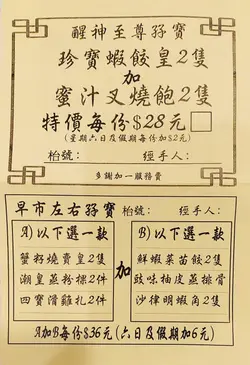 醒神至尊孖寶
珍寶蝦餃皇2隻
加
蜜汁叉燒飽2隻
特價每份$28元
(星期六日及假期每份加$2元)
枱號: 經手人:
多謝加一服務費
早市左右孖寶 枱號: 經手人:
A)以下選一款
蟹籽燒賣皇2隻
潮皇蒸粉粿2件
四寶滑雞扎2件
加
B)以下選一款
鮮蝦菜苗餃2隻
豉味柚皮蒸排骨
沙律明蝦角2隻
A加B每份$36元(六日及假期加6元)